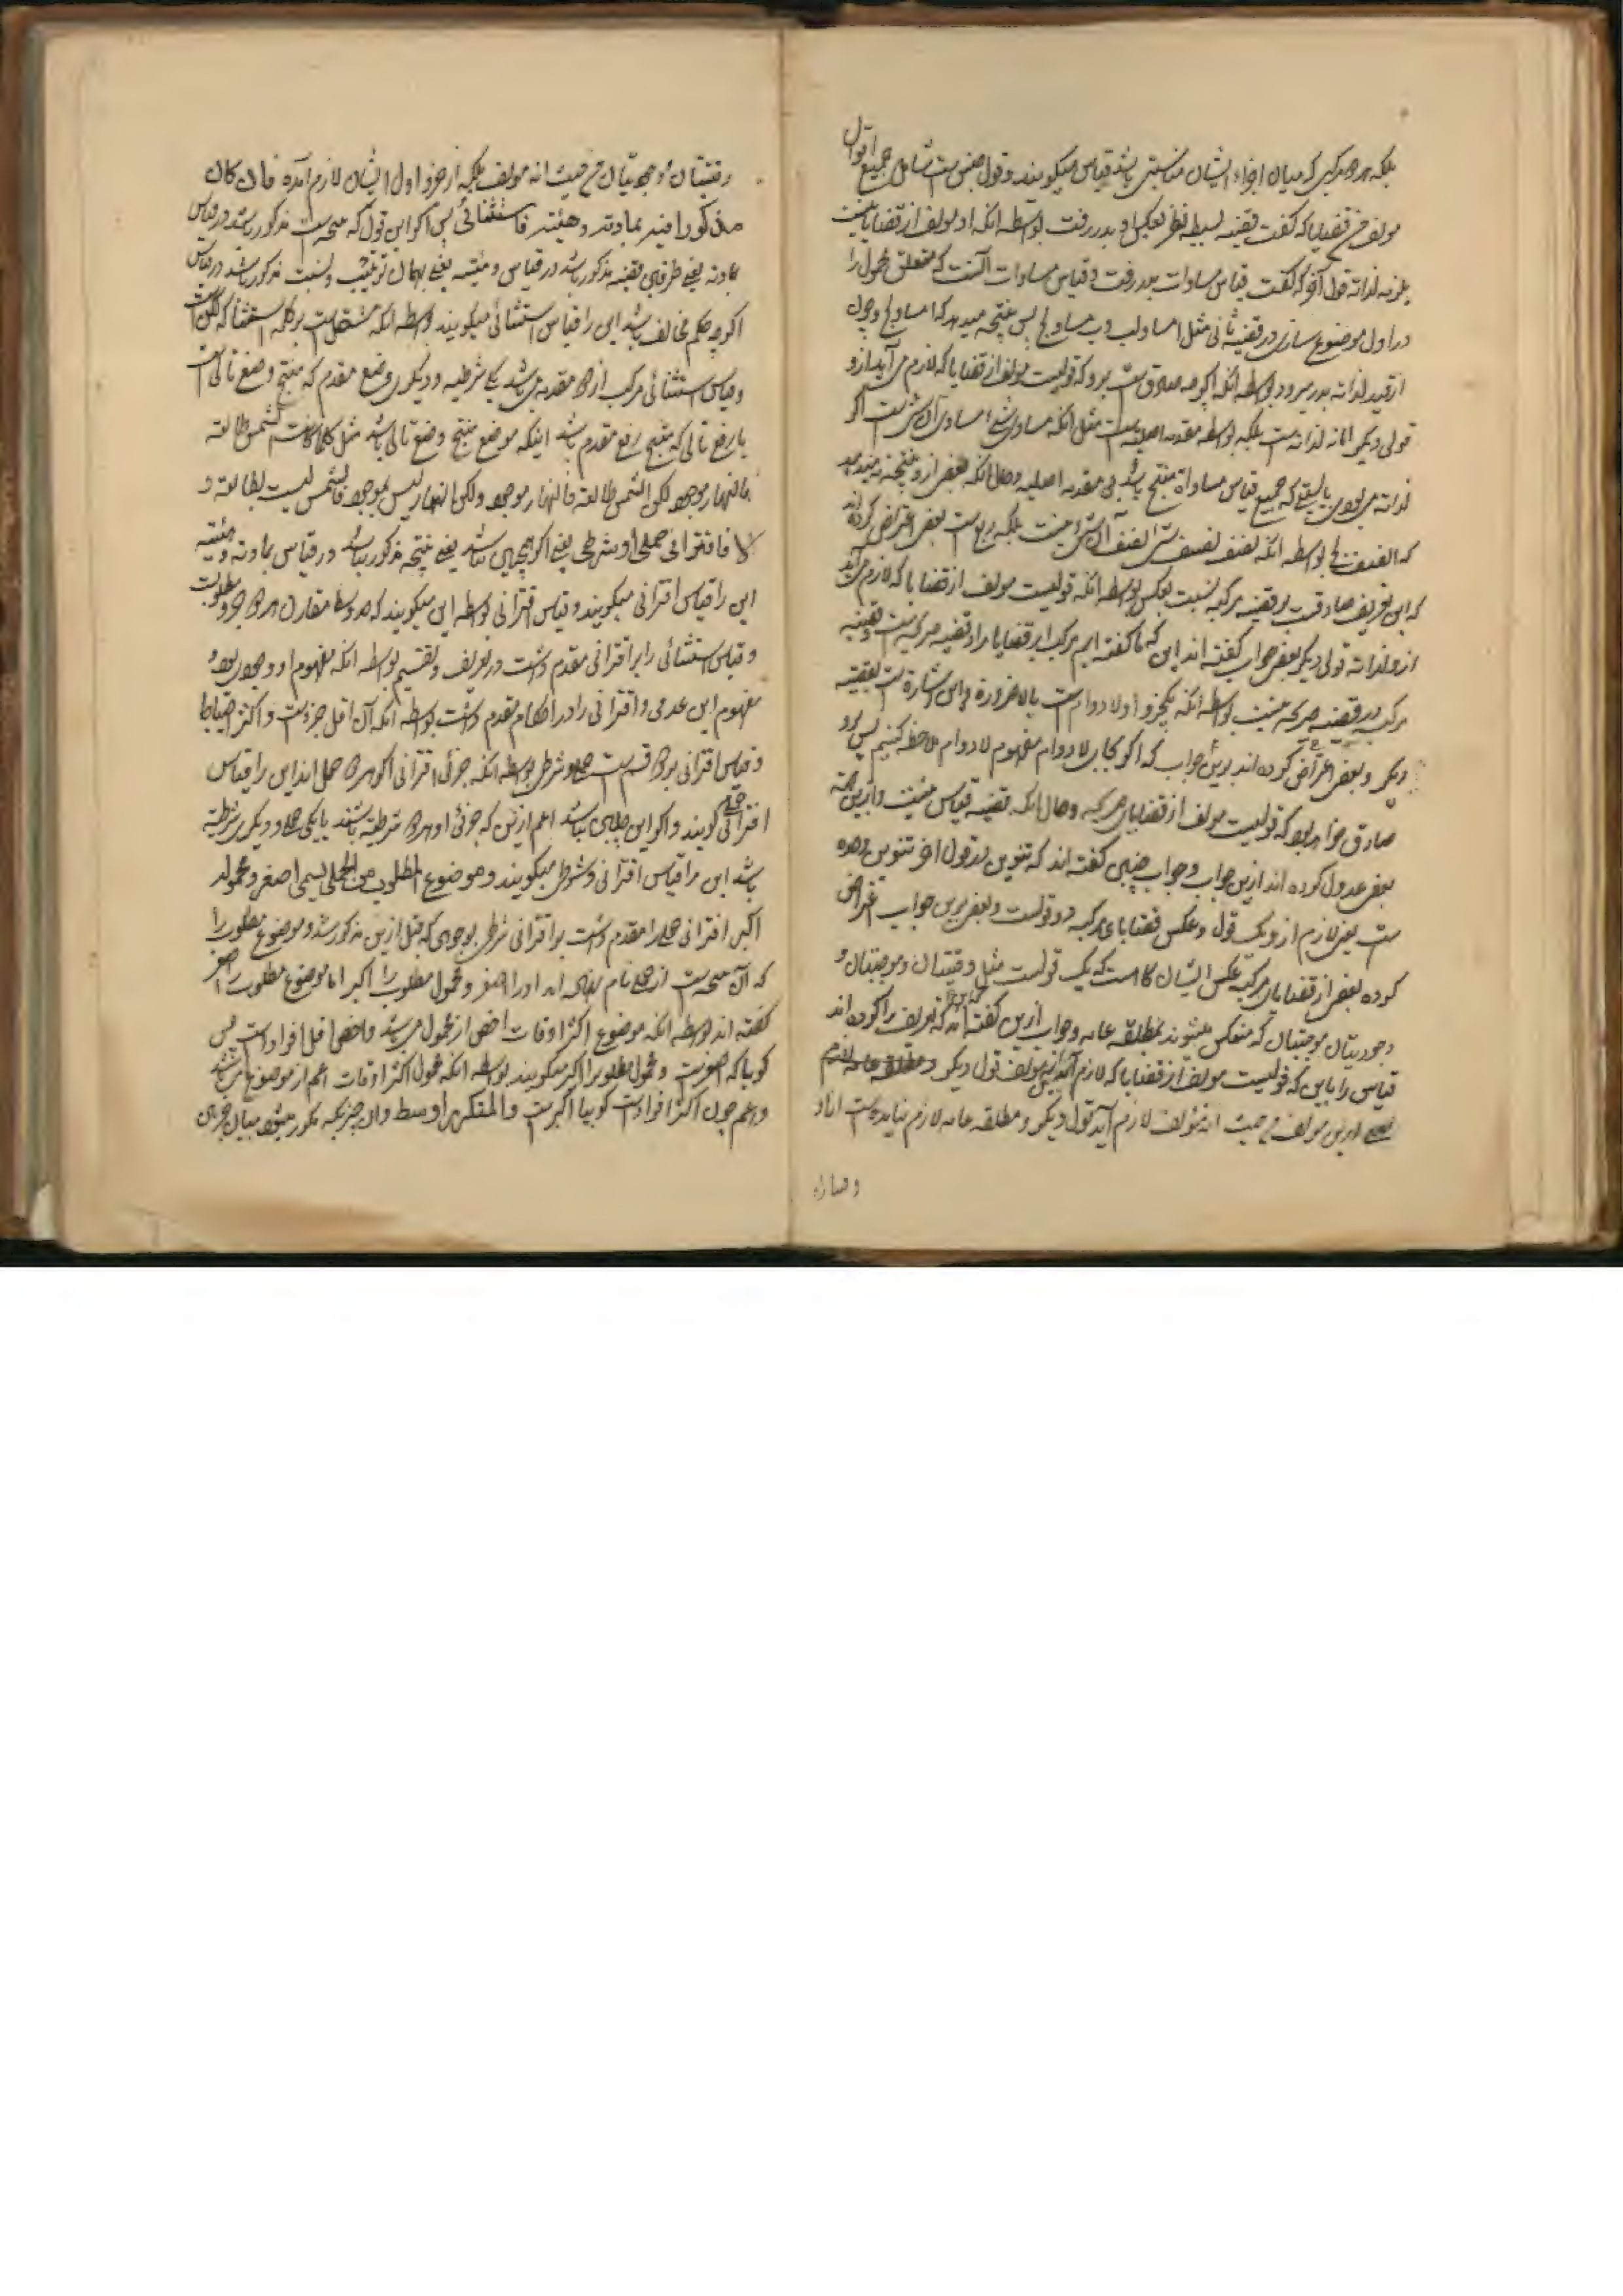 بلکه هر مرکبی که میان اجزاء ایشان مناسبتی باشد قیاس میکویند و قول جنس است شامل جمیع اقوال
مولف من قضایا که کفت قضیه بسیطه نظر بعکس او بدر رفت بواسطه انکه او مولف از قضایا نیست
یلزمه لذاته قول آخر که کفت قیاس مساوات بدر رفت و قیاس مساوات آنست که متعلق محمول را
در اول موضوع سازی در قضیه ثانی مثل ا مساو لب و ب مساو لج پس نتیجه میدهد که ا مساو لج و چون
از قید لذاته بدر میرود بواسطه انکه اکرچه صادق است برو که قولیست مولف از قضایا که لازم می آید ازو
قولی دیکر اما نه لذاته است بلکه بواسطه مقدمه اصلیه است مثل انکه مساوی شیء مساوی آن شی است اکر
لذاته می بود می بایست که جمیع قیاس مساواة منتج باشد بی مقدمه اصلیه و حال انکه بعضی ازو نتیجه نمیدهد
که ا نصف لج بواسطه انکه نصف نصف شی نصف آن شی نیست بلکه ربع است بعضی اعتراض کرده اند
که این تعریف صادقست بر قضیه مرکبه نسبت بعکس بواسطه انکه قولیست مولف از قضایا که لازم می آید
ازو لذاته قولی دیکر بعضی جواب کفته اند این که ما کفته ایم مرکب از قضایا مراد قضیه صریحه است و قضیه
مرکبه در قضیه صریحه نیست بواسطه انکه یکجزو او لا دوام است یا لا ضرورة و این اشارة است بقضیه
دیکر و بعضی اعتراض کرده اند برین جواب که اکر بجای لا دوام مفهوم لا دوام ملاحظه کنیم پس برو
صادق خواهد بود که قولیست مولف از قضایای صریحه و حال انکه قضیه قیاس نیست و ازین جهة
بعضی عدول کرده اند ازین جواب و جواب چنین کفته اند که تنوین در قول آخر تنوین وحده
است یعنی لازم ازو یک قول و عکس قضایای مرکبه دو قولست و بعضی برین جواب اعتراض
کرده بعضی از قضایای مرکبه عکس ایشان کاه است که یک قولست مثل وقتیتان و موجهتان و
وجودیتان موجبتان که منعکس میشوند بمطلقه عامه و جواب ازین کفته اند که تعریف را کرده اند
قیاس را باین که قولیست مولف از قضایا که لازم آید ازین مولف قول دیکر و مطلقه عامه لازم
ازین مولف من حیث انه مؤلف لازم آید قول دیکر و مطلقه عامه لازم نیامده است از
وقتیتان
وقتیتان وجودیتان من حیث انه مولف بلکه از جزو اول ایشان لازم آمده فان کان
مذکورا فیه بمادته و هیئته فاستثنائی پس اکر این قول که نتیجه است مذکور باشد در قیاس
بمادته یعنی طرفین قضیه مذکور باشد در قیاس و هیئته یعنی بهمان ترتیب و نسبت مذکور باشد در قیاس
اکرچه حکم مخالف باشد این را قیاس استثنائی میکویند بواسطه انکه مشتمل است بر کلمه استثنا که لکن است
و قیاس استثنائی مرکب از دو مقدمه می باشد یکی شرطیه و دیکری وضع مقدم که منتج وضع تالی است
یا رفع تالی که منتج رفع مقدم باشد اینکه موضع منتج وضع تالی باشد مثل کلما کانت الشمس طالعة
فالنهار موجود لکن الشمس طالعة فالنهار موجود ولکن النهار لیس بموجود فالشمس لیست بطالعة و
الا فاقترانی حملی او شرطی یعنی اکر همچنین نباشد یعنی نتیجه مذکور نباشد در قیاس بمادته و هیئته
این را قیاس اقترانی میکویند و قیاس اقترانی بواسطه این میکویند که حد وسط مقارن هر دو جزو مطلوبست
و قیاس استثنائی را بر اقترانی مقدم داشت در تعریف و تقسیم بواسطه انکه مفهوم او وجودی بود و
مفهوم این عدمی و اقترانی را در احکام مقدم داشت بواسطه انکه آن اقل جزوست و اکثر احتیاط
و قیاس اقترانی بر دو قسم است حملی و شرطی بواسطه انکه جزئی اقترانی اکر هر دو حملی اند این را قیاس
اقترانی حملی کویند و اکر این چنین نباشد اعم ازین که جزئی او هر دو شرطیه باشند یا یکی حملی و دیکری شرطیه
باشد این را قیاس اقترانی شرطی میکویند و موضوع المطلوب من الحملی یسمی اصغر و محموله
اکبر اقترانی حملی را مقدم داشت بر اقترانی شرطی بوجهی که قبل ازین مذکور شد و موضوع مطلوب را
که آن نتیجه است از حملی نام نهاده اند او را اصغر و محمول مطلوب را اکبر اما موضوع مطلوب را اصغر
کفته اند بواسطه انکه موضوع اکثر اوقات اخص از محمول می باشد و اخص اقل افراد است پس
کویا که اصغرست و محمول مطلوب را اکبر میکویند بواسطه انکه محمول اکثر اوقات اعم از موضوع می باشد
و اعم چون اکثر افراد است کویا اکبرست والمتکرر اوسط و ان چیزیکه مکرر میشود میان جزئی